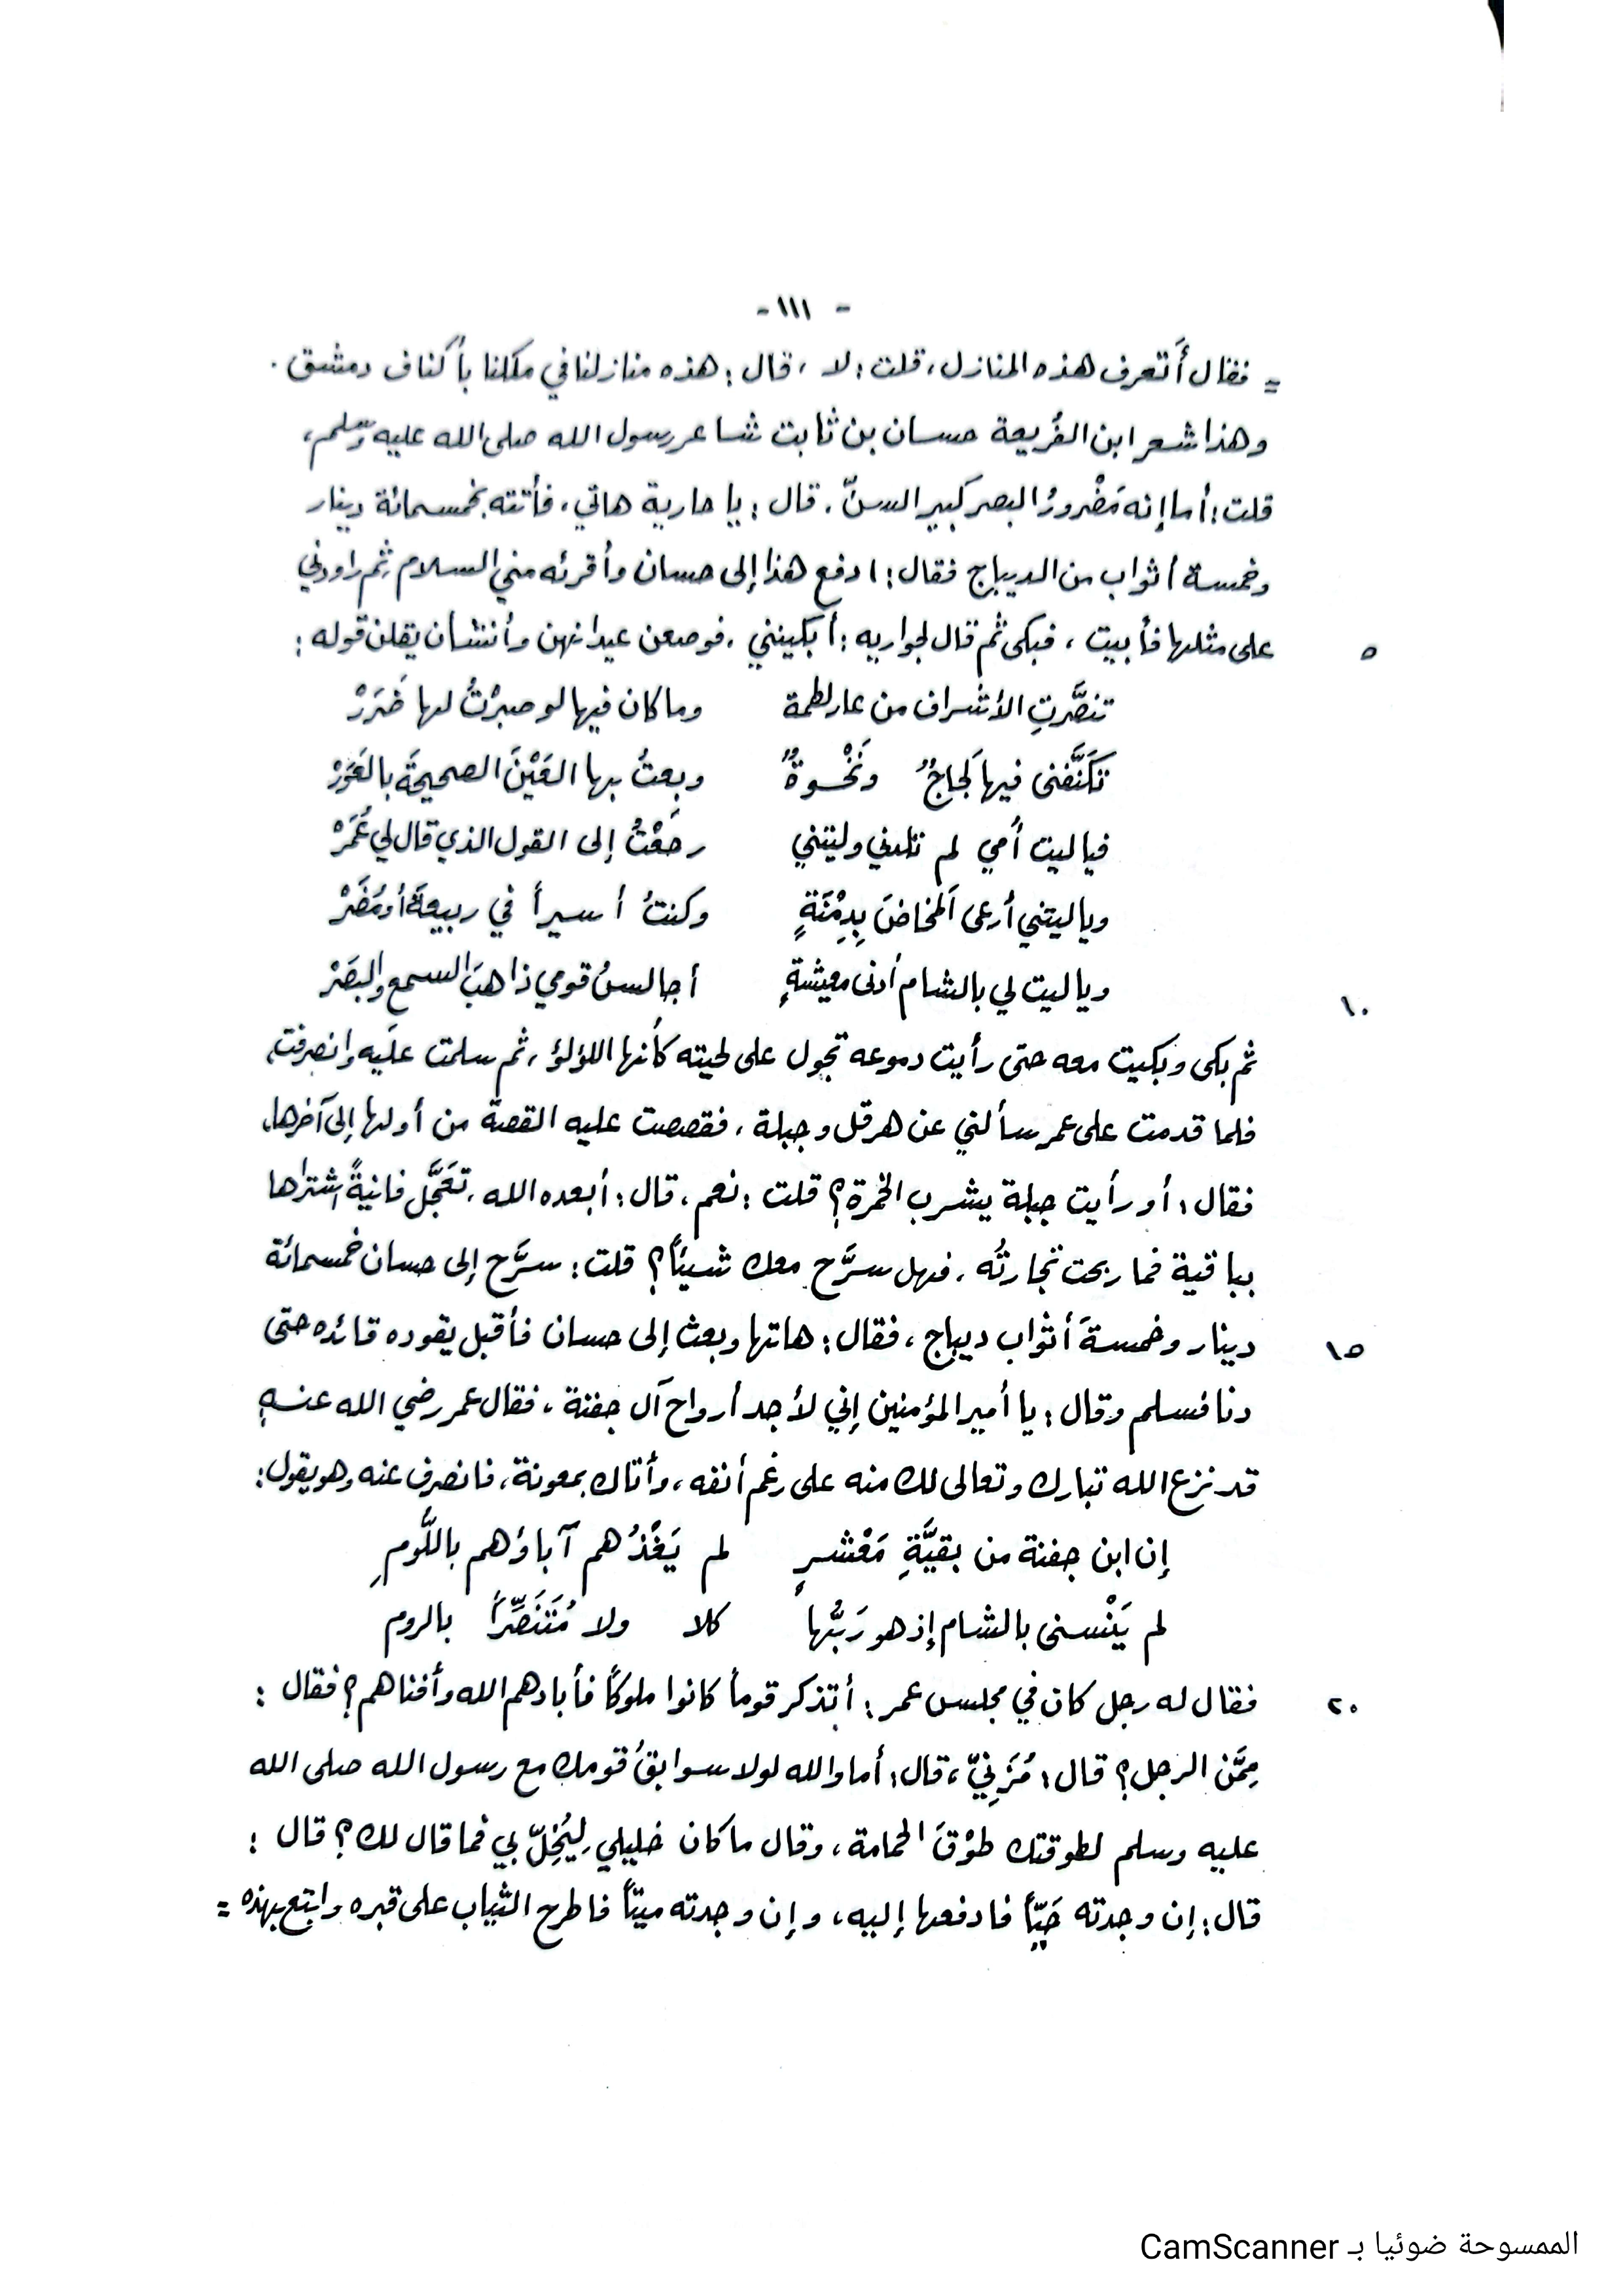 - ١١١ -
= فقال أَتعرف هذه المنازل، قلت: لا، قال: هذه منازلنا في ملكنا بأكناف دمشق.
وهذا شعر ابن الفُريعة حسان بن ثابت شاعر رسول الله صلى الله عليه وسلم،
قلت: أما إنه مَضْرورُ البصر كبير السنّ. قال: يا جارية هاتي، فأتته بخمسمائة دينار
وخمسة أثواب من الديباج فقال: ادفع هذا إلى حسان وأقرئه مني السلام ثم راودني
على مثلها فأبيت، فبكى ثم قال لجواريه: أبكينني، فوضعن عيدانهن وأنشأن يقلن قوله: ٥
تنصَّرتِ الأشراف من عار لطمة وما كان فيها لو صبرْتُ لها ضَرَرْ
تكَنَّفنى فيها لَجاجٌ ونَخْوةٌ وبعتُ بها العَيْنَ الصحيحةَ بالعَوَرْ
فيا ليت أُمي لم تلدني وليتني رجَعْتُ إلى القول الذي قال لي عُمَرْ
ويا ليتني أرعى اَلمخاضَ بِدِمْنَةٍ وكنتُ أسيراً في ربيعةَ أو مُضَرْ
ويا ليت لي بالشام أدنى معيشةٍ أجالسُ قومي ذاهبَ السمع والبصَرْ ١٠
ثم بكى وبكيت معه حتى رأيت دموعه تجول على لحيته كأنها اللؤلؤ، ثم سلمت عليه وانصرفت،
فلما قدمت على عمر سألني عن هرقل وجبلة، فقصصت عليه القصة من أولها إلى آخرها،
فقال: أو رأيت جبلة يشرب الخمرة؟ قلت: نعم، قال: أبعده الله، تعَجَّل فانيةً اشتراها
بباقية فما ربحت تجارتُه، فهل سرَّح معك شيئاً؟ قلت: سرَّح إلى حسان خمسمائة
دينار وخمسةَ أثواب ديباج، فقال: هاتها وبعث إلى حسان فأقبل يقوده قائده حتى ١٥
دنا فسلم وقال: يا أمير المؤمنين إني لأجد أرواح آل جفنة، فقال عمر رضي الله عنه:
قد نزع الله تبارك وتعالى لك منه على رغم أنفه، وأتاك بمعونة، فانصرف عنه وهو يقول:
إن ابن جفنة من بقيَّةِ مَعْشرٍ لم يَغْذُهم آباؤهم باللُّومِ
لم يَنْسنى بالشام إذ هو رَبُّها كلا ولا مُتَنَصِّراً بالروم
فقال له رجل كان في مجلس عمر: أتذكر قوماً كانوا ملوكاً فأبادهم الله وأفناهم؟ فقال: ٢٠
مِمَّن الرجل؟ قال: مُزَنِيّ، قال: أما والله لولا سوابقُ قومك مع رسول الله صلى الله
عليه وسلم لطوقتك طوْقَ الحمامة، وقال ما كان خليلي ليُخِلّ بي فما قال لك؟ قال:
قال: إن وجدته حَيّاً فادفعها إليه، وإن وجدته ميتاً فاطرح الثياب على قبره وابتع بهذه =
الممسوحة ضوئيا بـ CamScanner